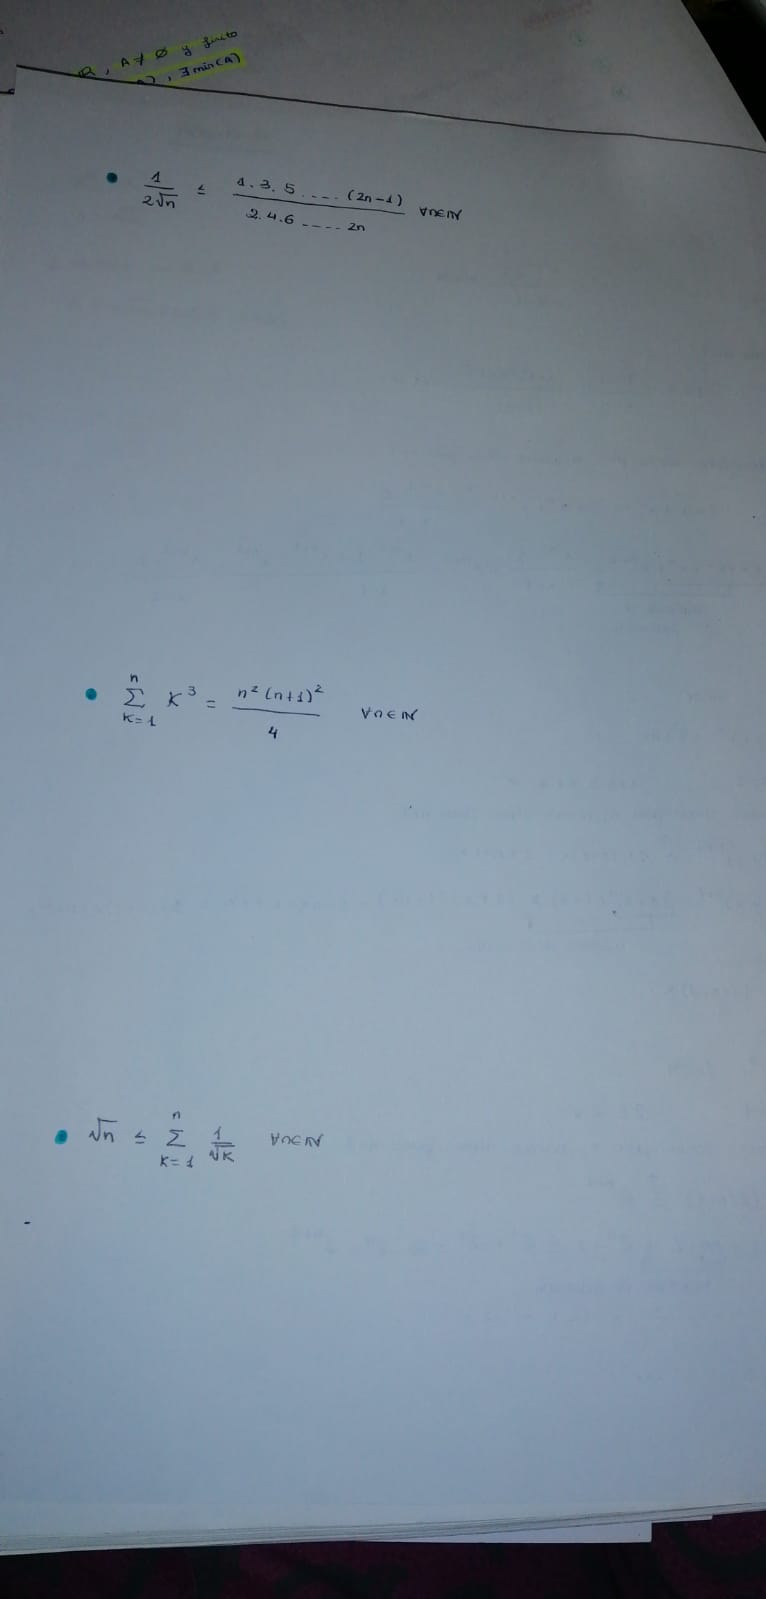 A ≠ ∅ y finito
∃ min(A)
• 1/(2√n) ≤ (1.3.5.....(2n-1))/(2.4.6.....2n) ∀n∈ℕ
• n Σ K=1 K³ = n²(n+1)²/4 ∀n∈ℕ
• √n ≤ n Σ K=1 1/√K ∀n∈ℕ